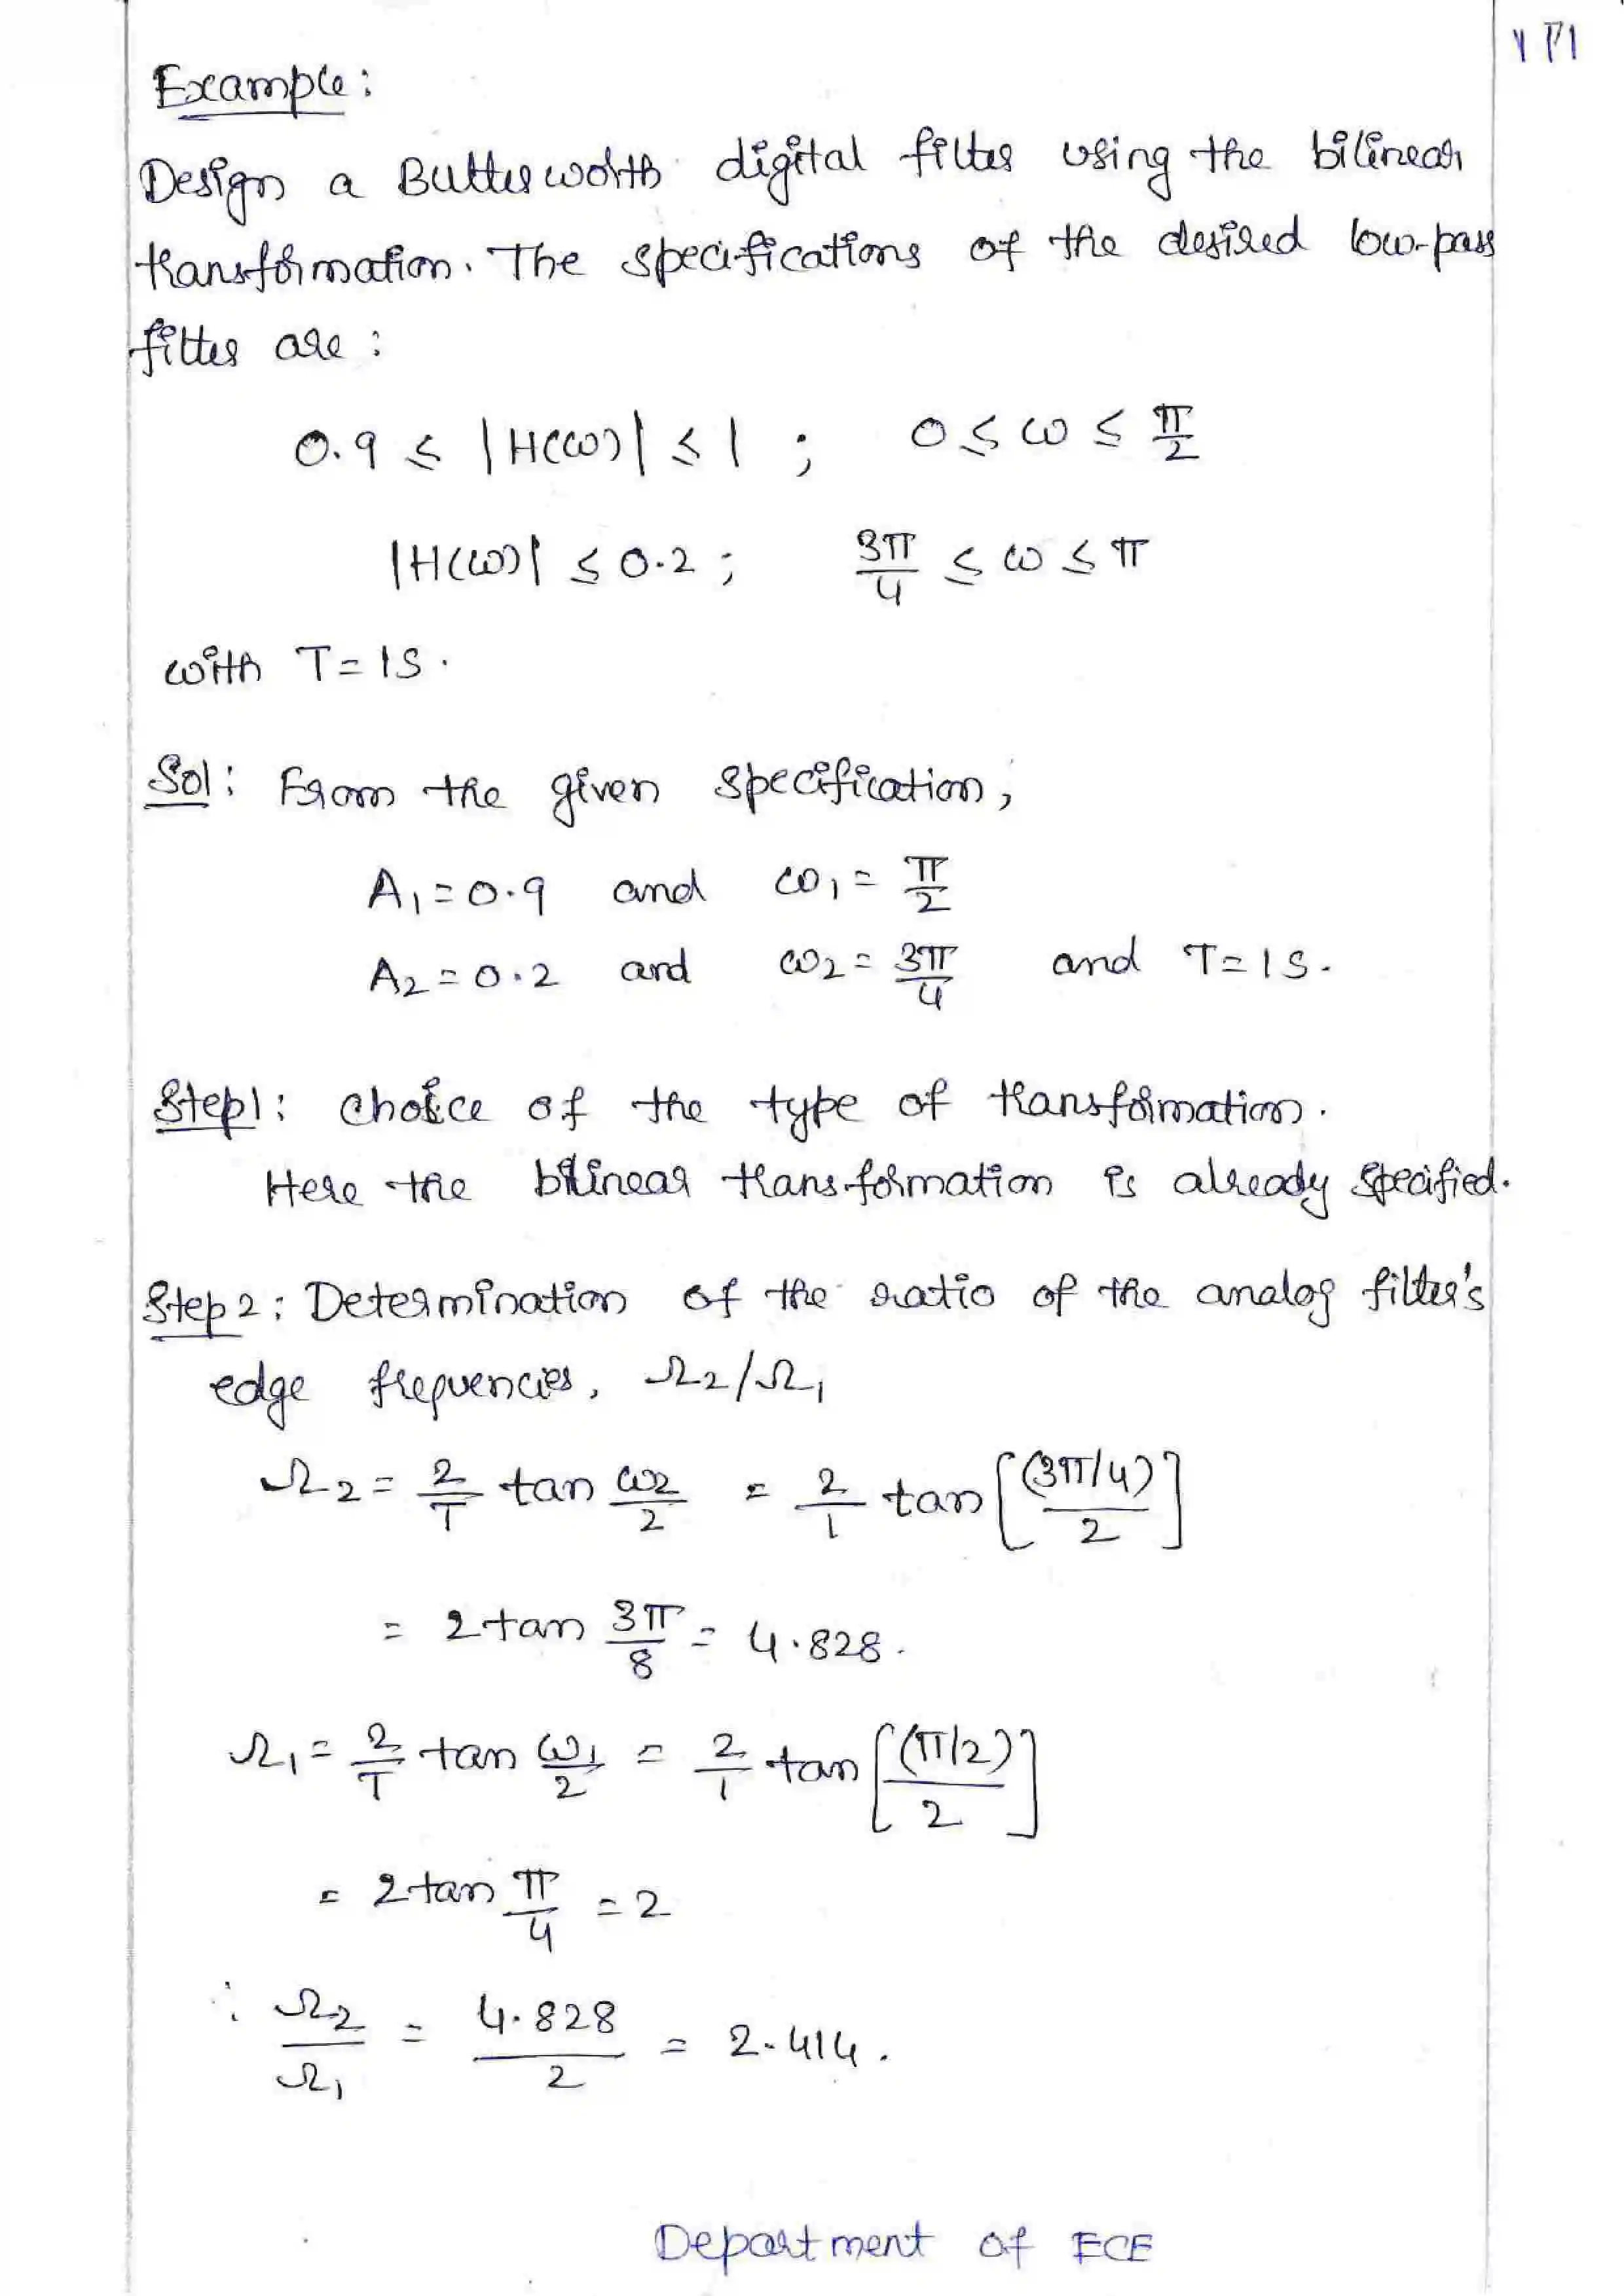 Example:
Design a Butterworth digital filter using the bilinear
transformation. The specifications of the desired low-pass
filter are :
0.9 ≤ |H(ω)| ≤ 1 ; 0 ≤ ω ≤ π/2
|H(ω)| ≤ 0.2 ; 3π/4 ≤ ω ≤ π
with T = 1S.
Sol: From the given specification,
A1 = 0.9 and ω1 = π/2
A2 = 0.2 and ω2 = 3π/4 and T = 1S.
Step1: Choice of the type of transformation.
Here the bilinear transformation is already specified.
Step2: Determination of the ratio of the analog filter's
edge frequencies, Ω2/Ω1
Ω2 = 2/T tan ω2/2 = 2/1 tan [(3π/4)/2]
= 2 tan 3π/8 = 4.828.
Ω1 = 2/T tan ω1/2 = 2/1 tan [(π/2)/2]
= 2 tan π/4 = 2
∴ Ω2/Ω1 = 4.828/2 = 2.414.
Department of ECE